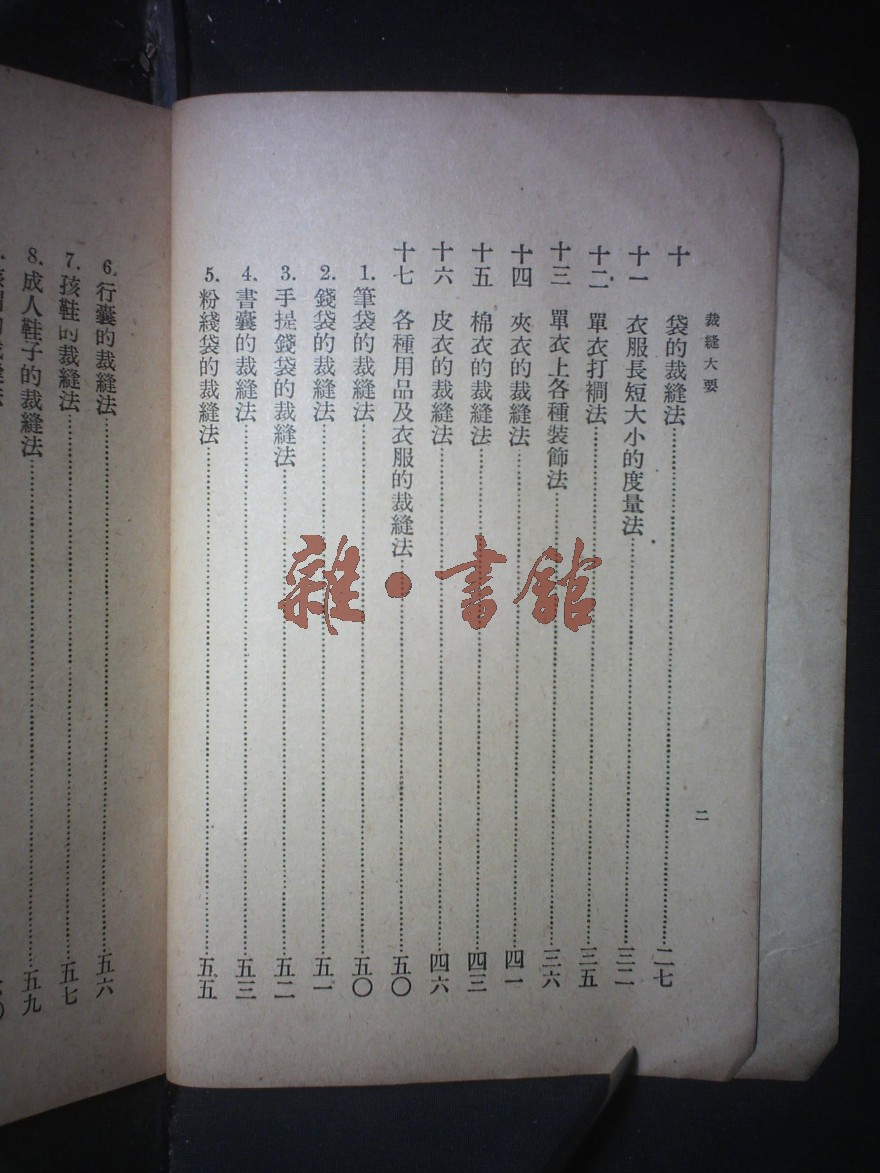 裁縫大要
十 袋的裁縫法……二七
十一 衣服長短大小的度量法……三二
十二 單衣打襇法……三五
十三 單衣上各種裝飾法……三六
十四 夾衣的裁縫法……四一
十五 棉衣的裁縫法……四三
十六 皮衣的裁縫法……四六
十七 各種用品及衣服的裁縫法……五〇
1. 筆袋的裁縫法……五〇
2. 錢袋的裁縫法……五一
3. 手提錢袋的裁縫法……五二
4. 書囊的裁縫法……五三
5. 粉綫袋的裁縫法……五五
二
6. 行囊的裁縫法……五六
7. 孩鞋的裁縫法……五七
8. 成人鞋子的裁縫法……五九
雜·書館